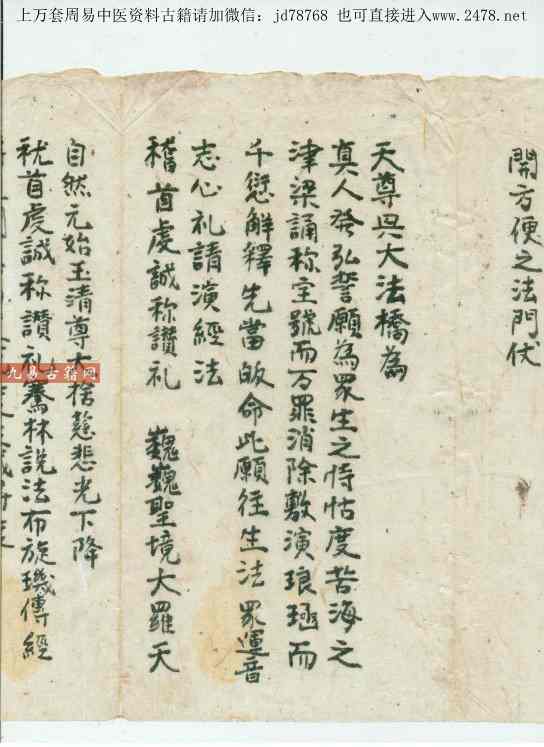 上万套周易中医资料古籍请加微信：jd78768 也可直接进入www.2478.net
開方便之法門伏
天尊興大法橋為
真人發弘誓願為眾生之恃怙度苦海之
津梁誦称宝號而万罪消除敷演琅函而
千愆解釋先當皈命此願往生法眾運音
志心礼請演經法
稽首虔誠称讚礼 巍巍聖境大羅天
自然元始玉清尊大捨慈悲光下降
稽首虔誠称讚礼騫林説法布旋璣傳經
九易古籍网